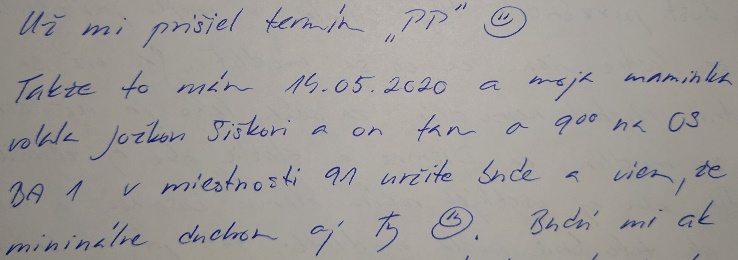 Už mi prišiel termín „PP“ ☺
Takže to mám 14.05.2020 a moja maminka
volala Jožkovi Šiškovi a on tam o 9⁰⁰ na OS
BA 1 v miestnosti 91 určite bude a viem, že
minimálne duchom aj Ty ☺. Budú mi ak